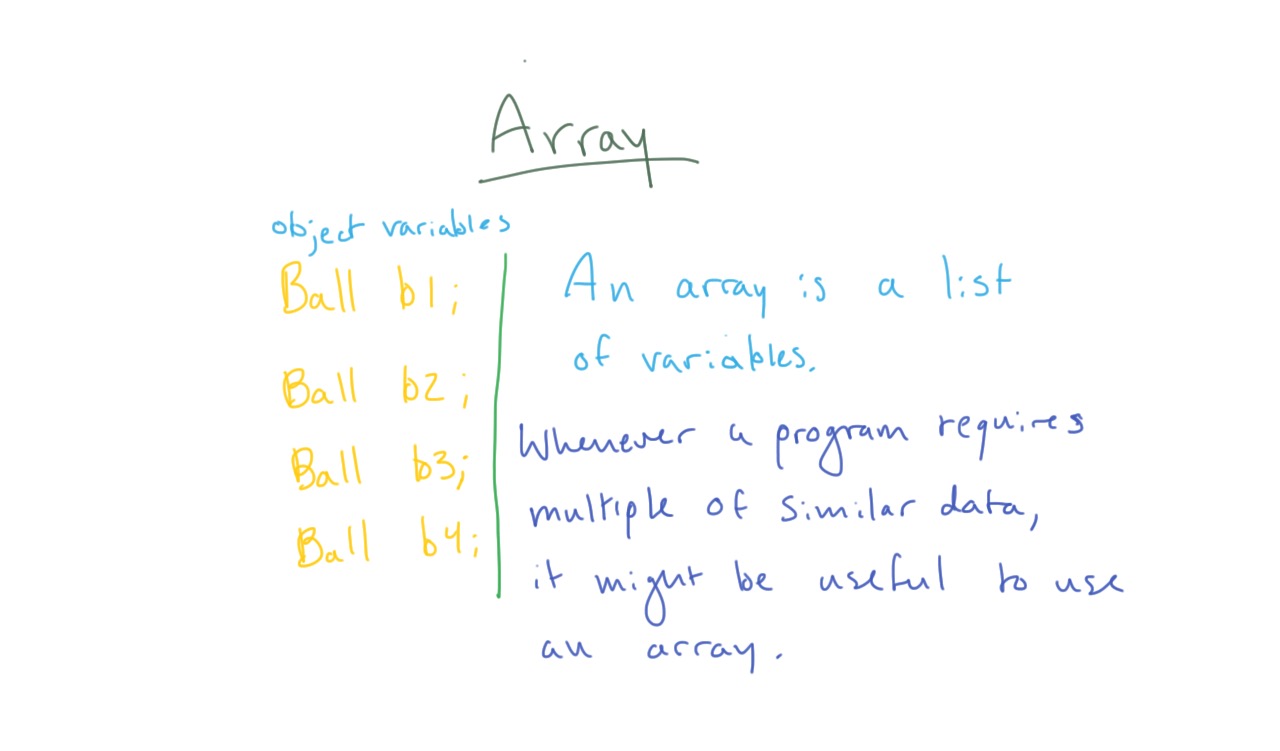 Array
object variables
Ball b1;
Ball b2;
Ball b3;
Ball b4;
An array is a list
of variables.
Whenever a program requires
multiple of similar data,
it might be useful to use
an array.